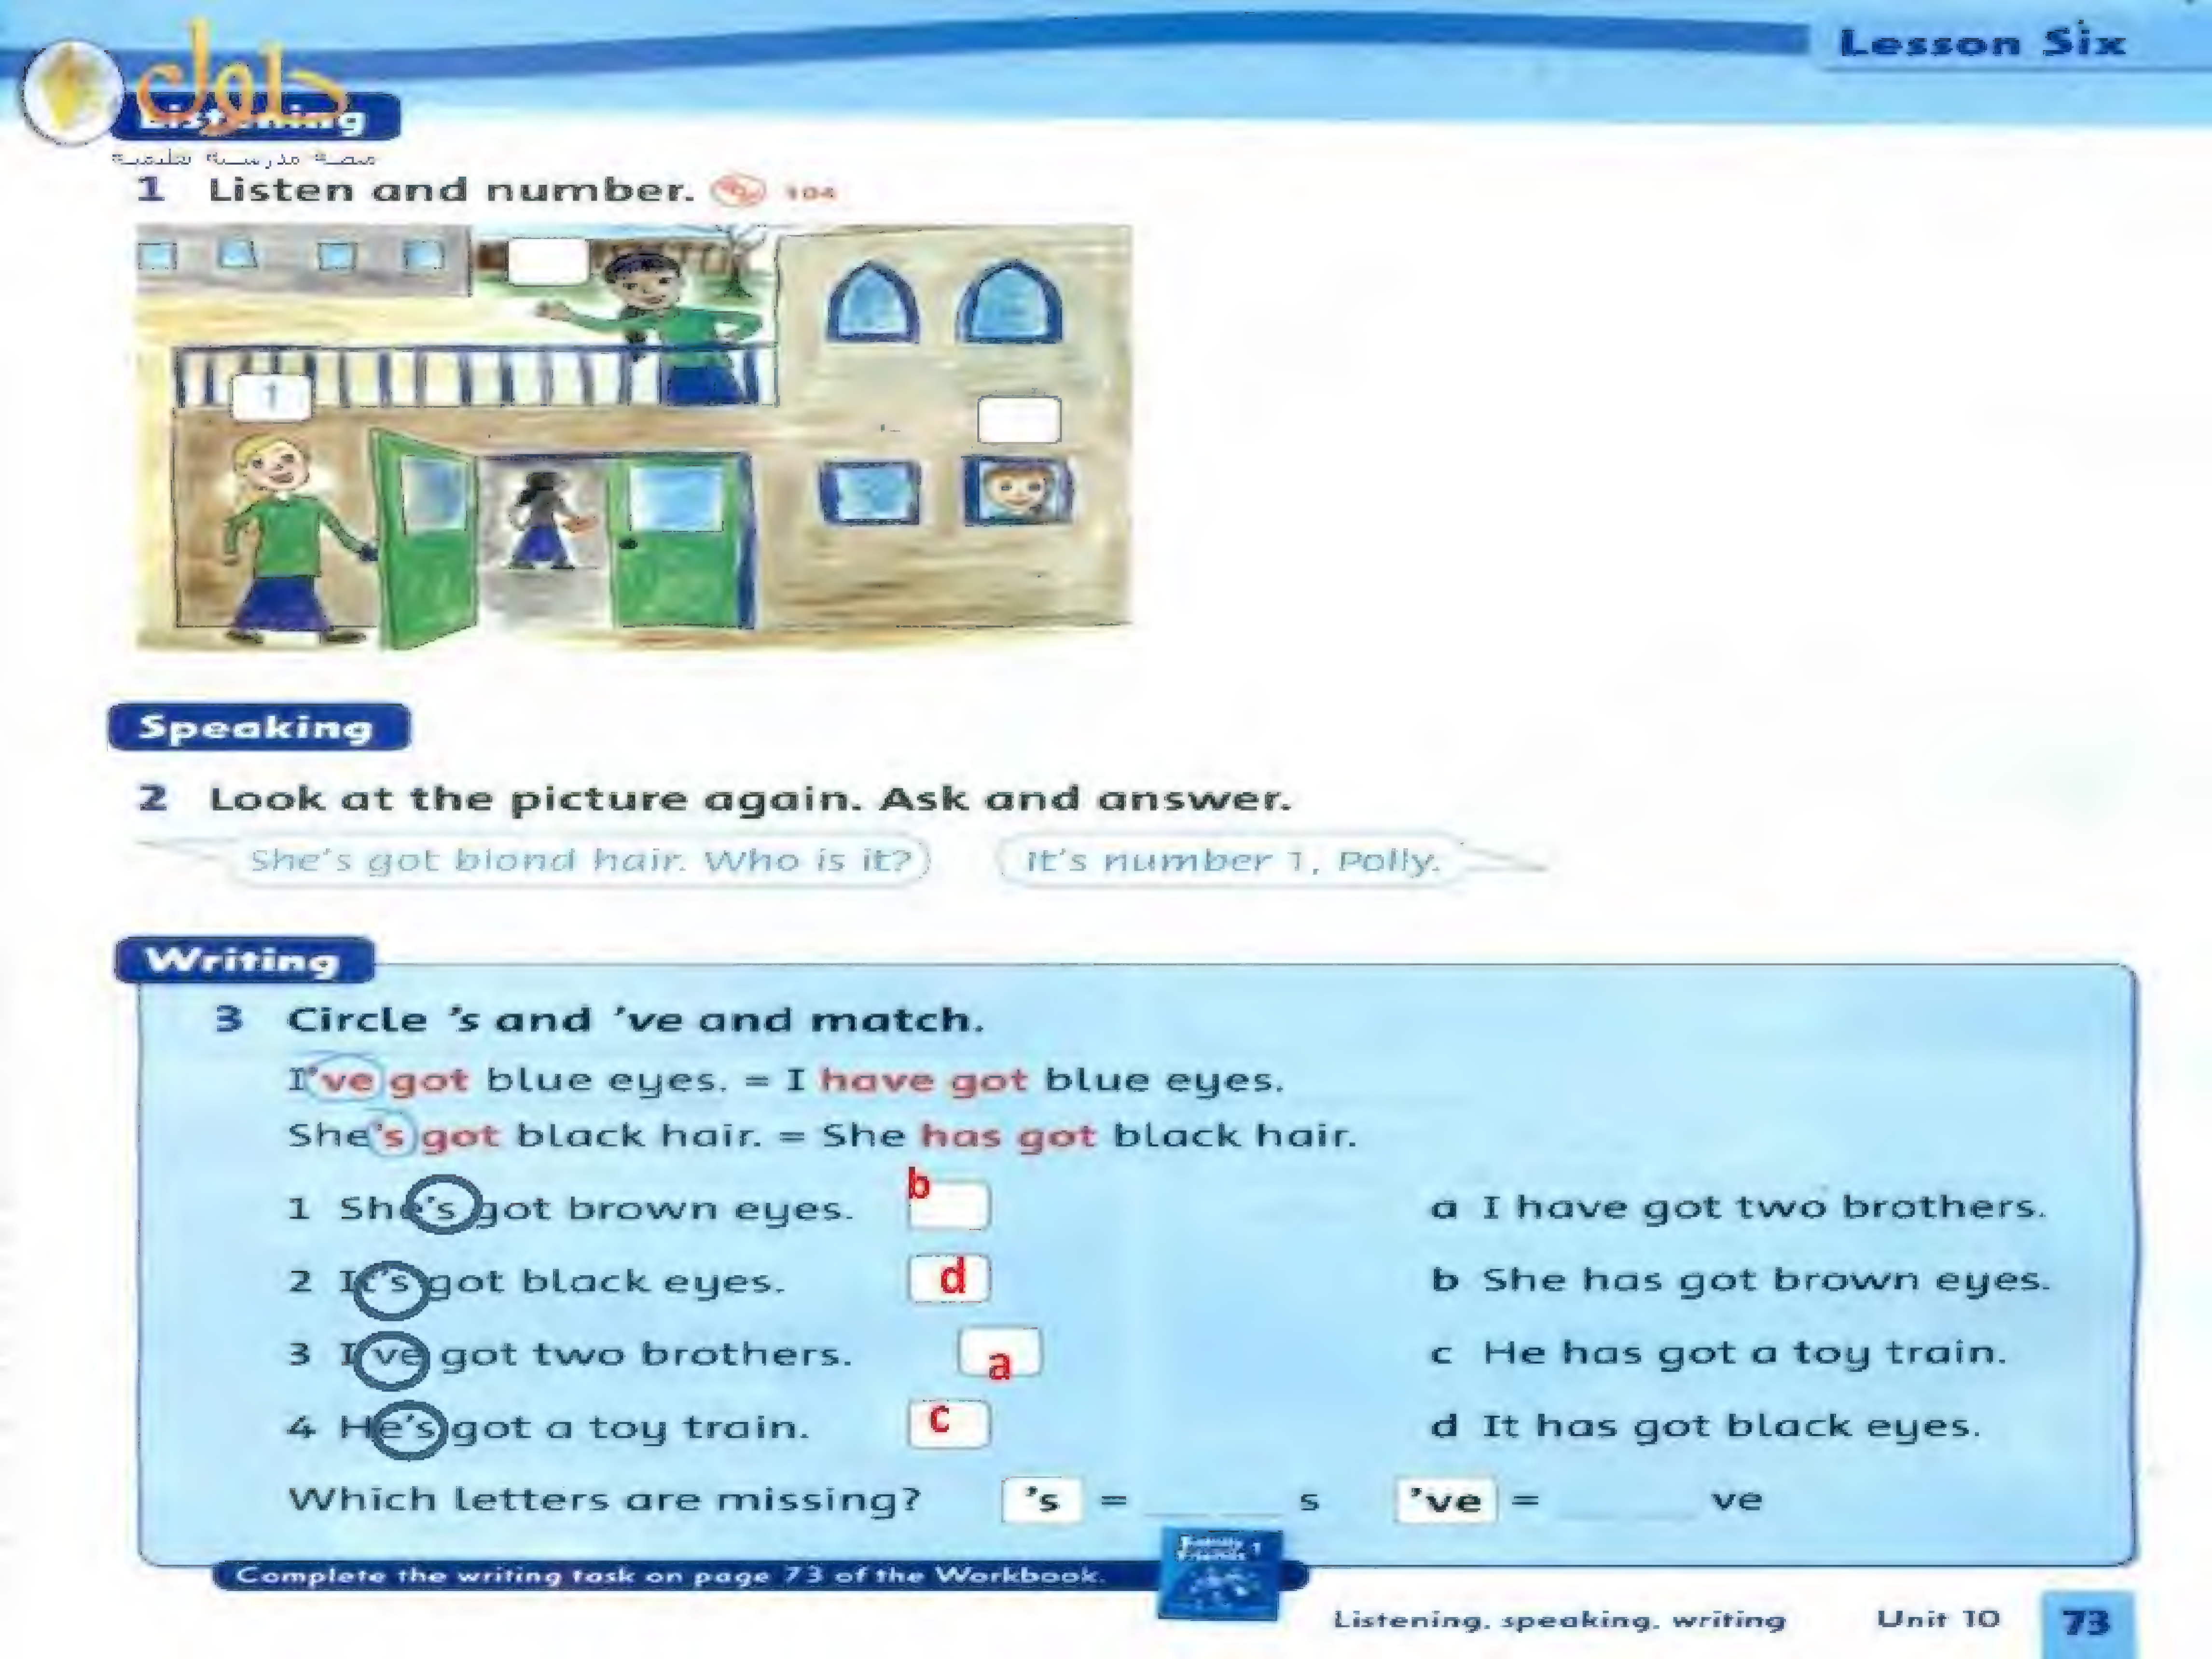 Lesson Six
حلول
Listening
منصة مدرسية تعليمية
1 Listen and number. 104
1
Speaking
2 Look at the picture again. Ask and answer.
She's got blond hair. Who is it? It's number 1, Polly.
Writing
3 Circle 's and 've and match.
I've got blue eyes. = I have got blue eyes.
She's got black hair. = She has got black hair.
1 She's got brown eyes. b a I have got two brothers.
2 It's got black eyes. d b She has got brown eyes.
3 I've got two brothers. a c He has got a toy train.
4 He's got a toy train. c d It has got black eyes.
Which letters are missing? 's = ____ s 've = ____ ve
Family Friends 1
Complete the writing task on page 73 of the Workbook.
Listening, speaking, writing Unit 10 73